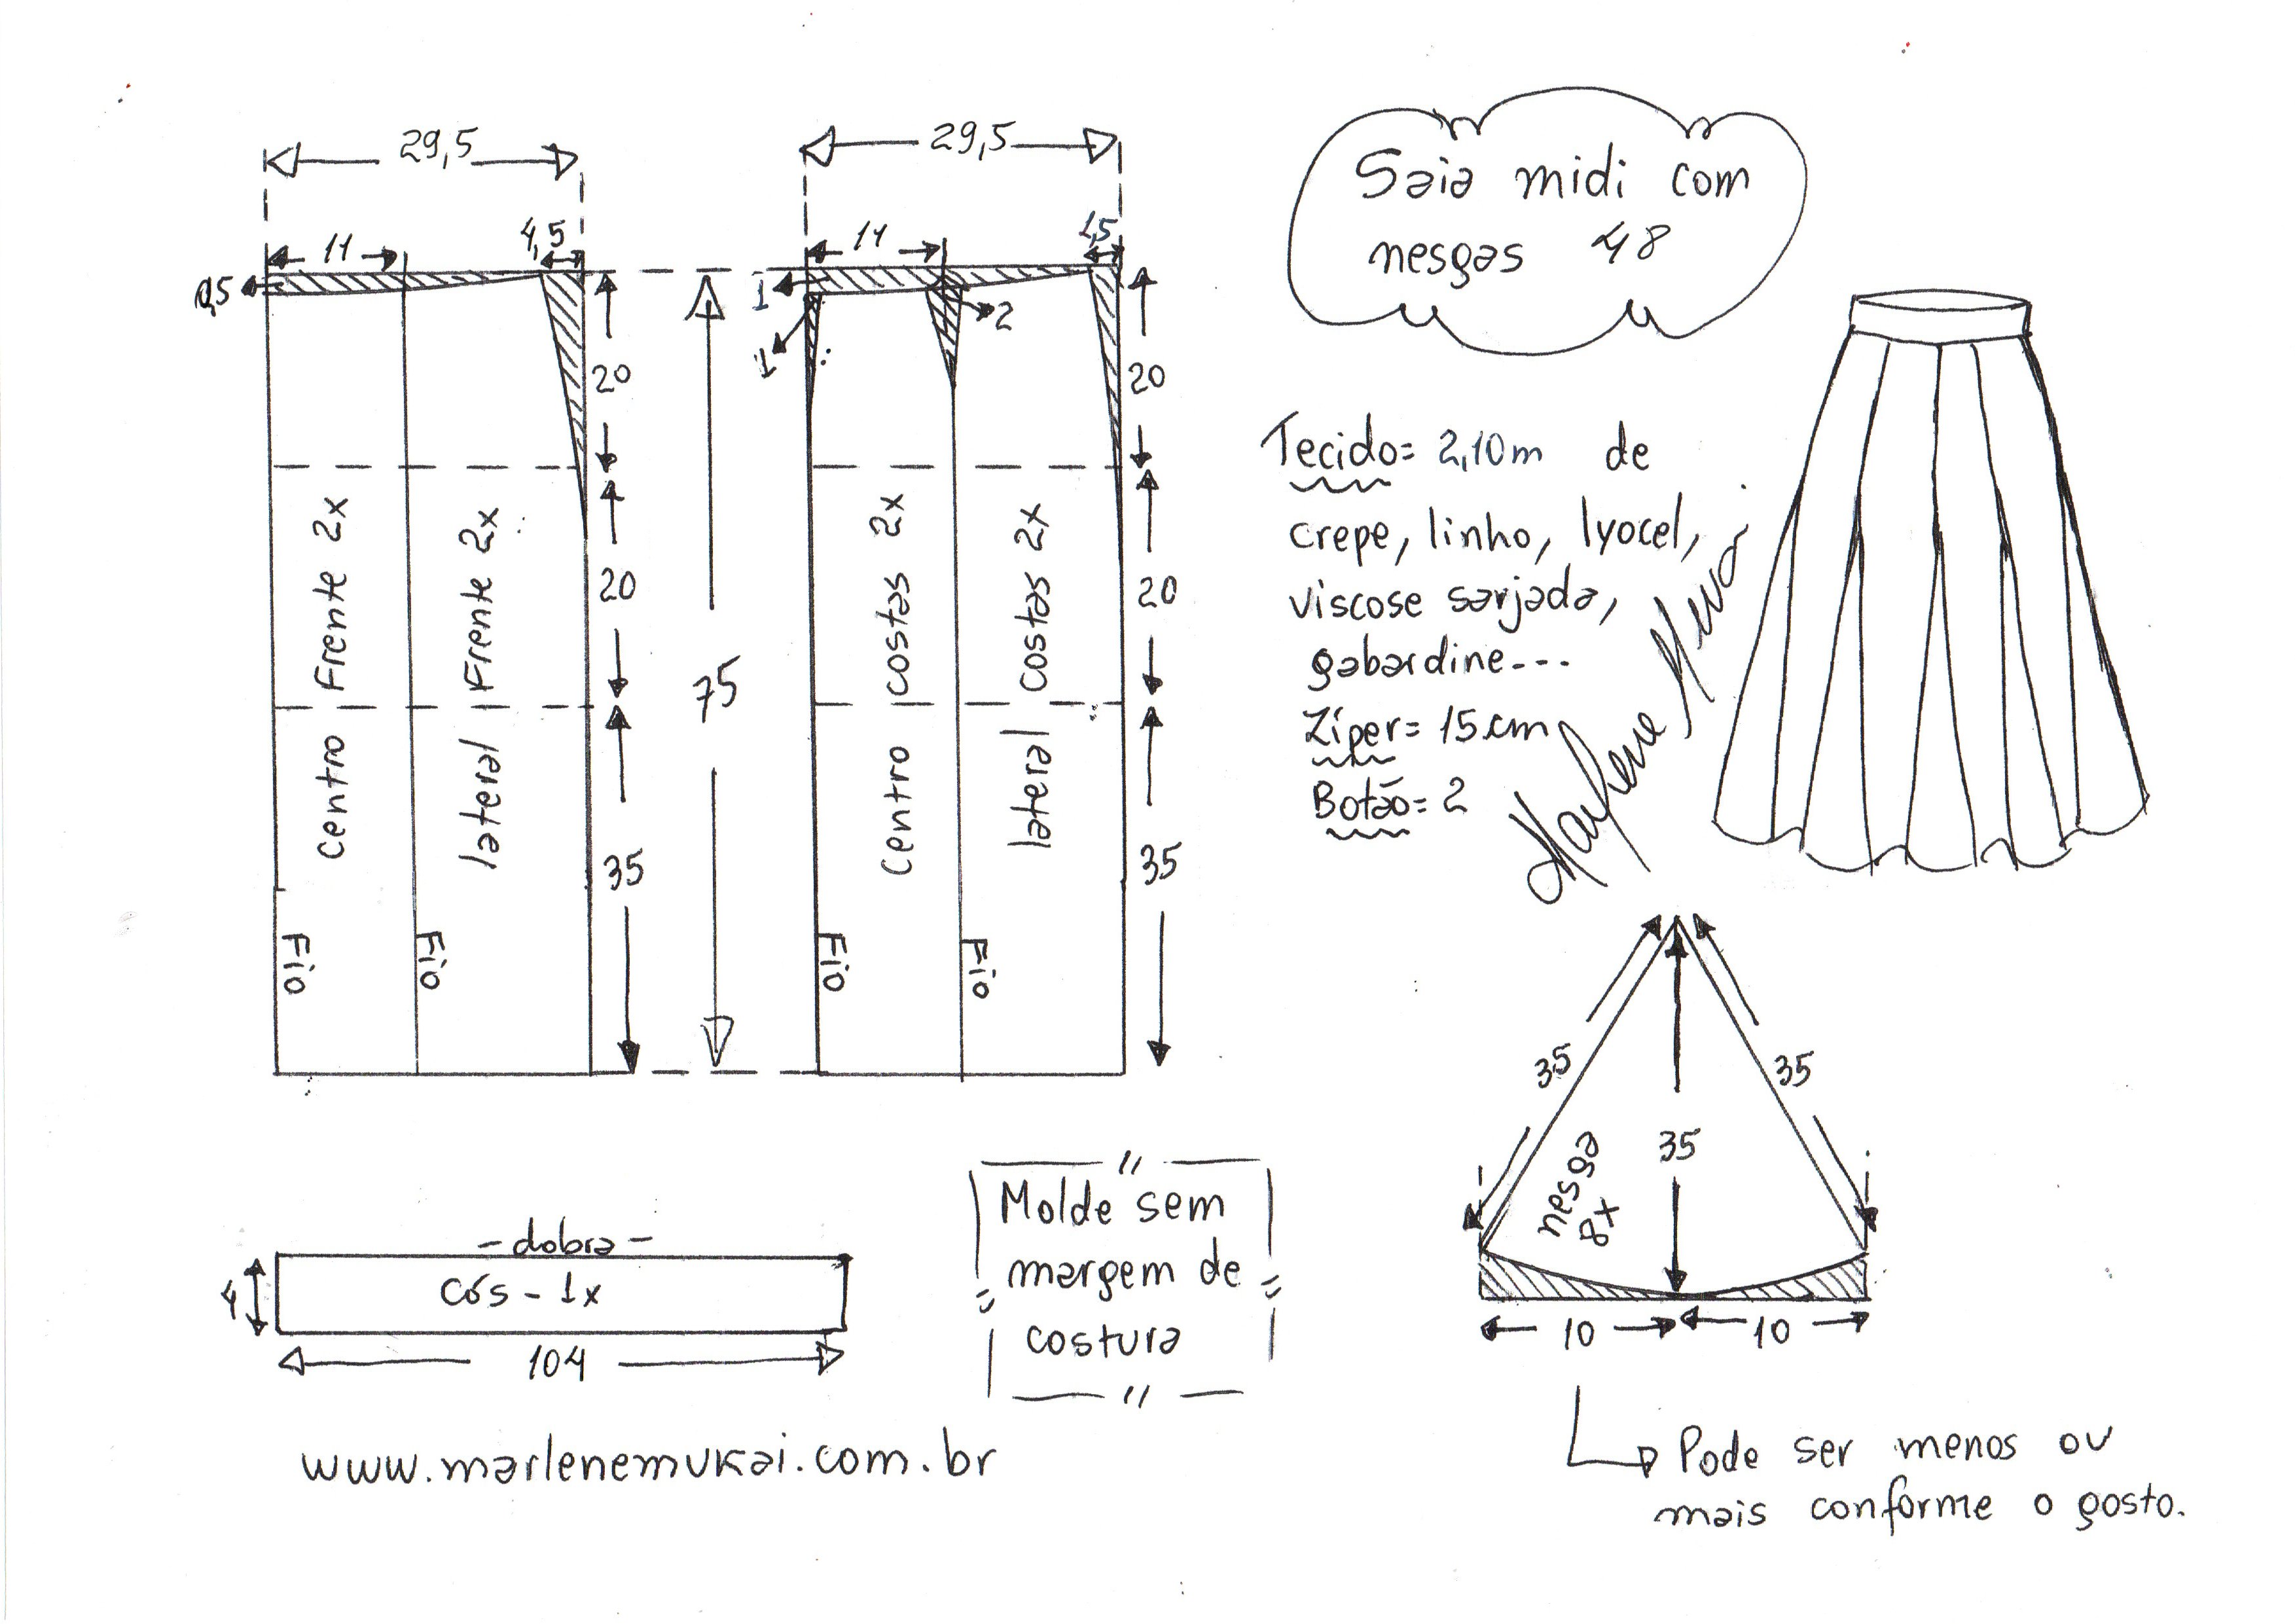 Saia midi com
nesgas 48
29,5
11
4,5
0,5
20
20
35
Centro Frente 2x
lateral Frente 2x
Fio
Fio
75
29,5
11
1,5
1
1
2
20
20
35
Centro costas 2x
lateral costas 2x
Fio
Fio
Tecido= 2,10m de
crepe, linho, lyocel,
viscose sarjada,
gabardine---
Zíper= 15cm
Botão= 2
Marlene Mukai
35
35
35
nesga
8x
10
10
Pode ser menos ou
mais conforme o gosto.
-dobra-
cós - 1x
4
104
Molde sem
margem de
costura
www.marlenemukai.com.br